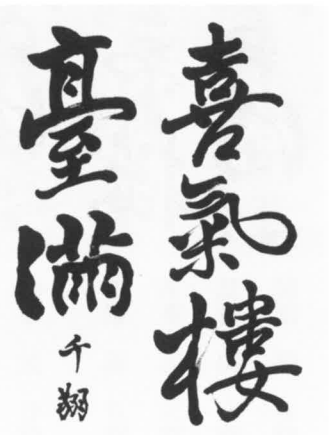 喜氣樓
臺滿
千翔